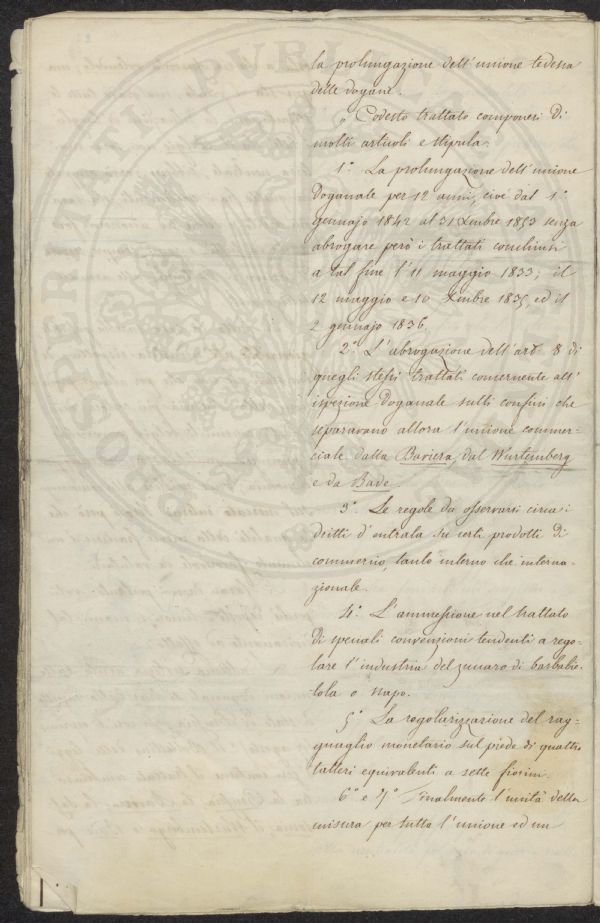 la prolungazione dell'unione tedesca
delle dogane.
„ Codesto trattato componesi di
molti articoli e stipula:
1.° La prolungazione dell'unione
doganale per 12 anni, cioé dal 1.°
gennajo 1842 al 31 Xmbre 1853 senza
abrogare però i trattati conchiusi
a tal fine l'11 maggio 1833; il
12 maggio e 10 Xmbre 1835, ed il
2 gennajo 1836.
2.° L'abrogazione dell'art. 8 di
quegli stessi trattati concernente all'
ispezione doganale sulli confini che
separavano allora l'unione commer-
ciale dalla Baviera, dal Wurtemberg
e da Bade.
3.° Le regole da osservarsi circa i
dritti d'entrata su certi prodotti di
commercio, tanto interno che interna-
zionale.
4.° L'ammessione nel trattato
di speciali convenzioni tendenti a rego-
lare l'industria del zuccaro di barbabie-
tola o napo.
5.° La regolarizzazione del rag-
guaglio monetario sul piede di quattro
talleri equivalenti a sette fiorini.
6.° e 7.° Finalmente l'unità della
misura per tutta l'unione ed un
PVBLI
PRIVATI